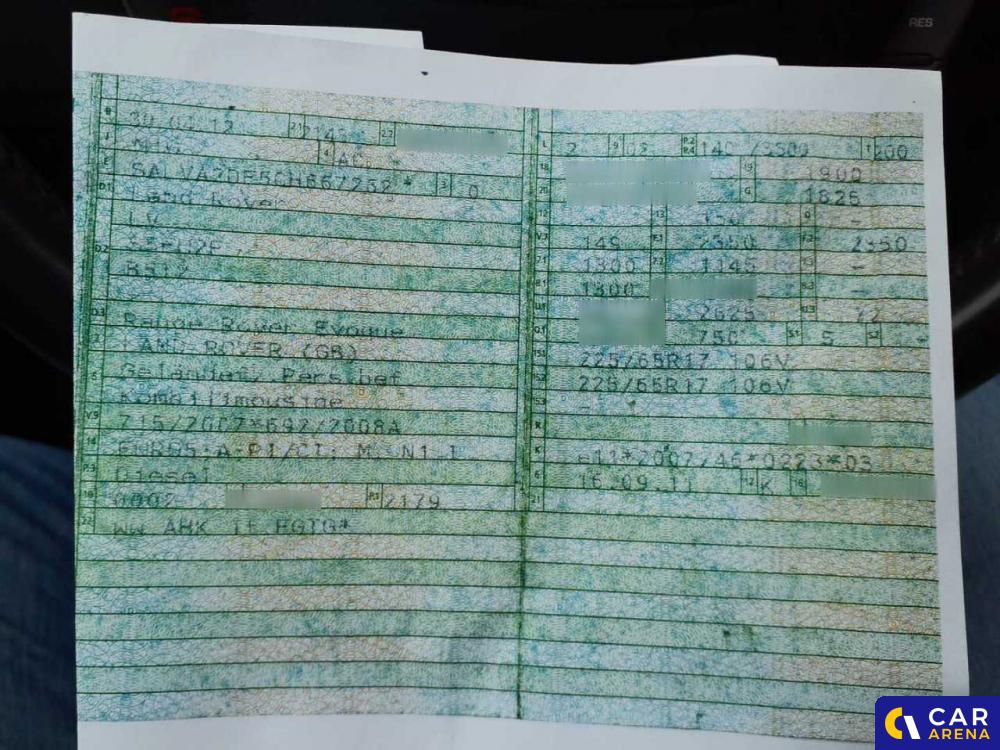 RES
B 30.01.12 2.1 2.2
J M1G 4 AC
E 3 0
D.1 Land Rover
LV
D.2
D.3 Range Rover Evoque
2 LAND ROVER (GB)
5 Geländefz.Pers.bef
Kombilimousine
V.9 715/2007*692/2008A
14 EURO5;A;PI/CI; M, N1 I
P.3 Diesel
10 0002 P.1 2179
22 WW AHK LT.EGTG*
L 2 9 P.2 P.4 140 /3500 T 200
18 19 1900
20 G 1825
12 13 150 Q -
V.7 149 F.1 2350 F.2 2350
7.1 1300 7.2 1145 7.3 -
8.1 1300 8.3 -
U.1 2625 U.3 72
O.1 750 S.1 5 S.2 -
15.1 225/65R17 106V
15.2 225/65R17 106V
15.3 -
R
K e11*2007/46*0223*03
6 16.09.11 17 K 16
21
CAR
ARENA